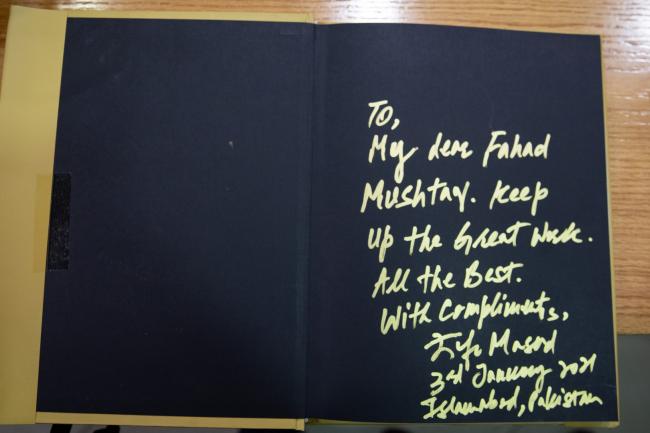 To,
My dear Fahad
Mushtaq. Keep
up the Great Work.
All the Best.
With Compliments,
Masood
3rd January 2021
Islamabad, Pakistan